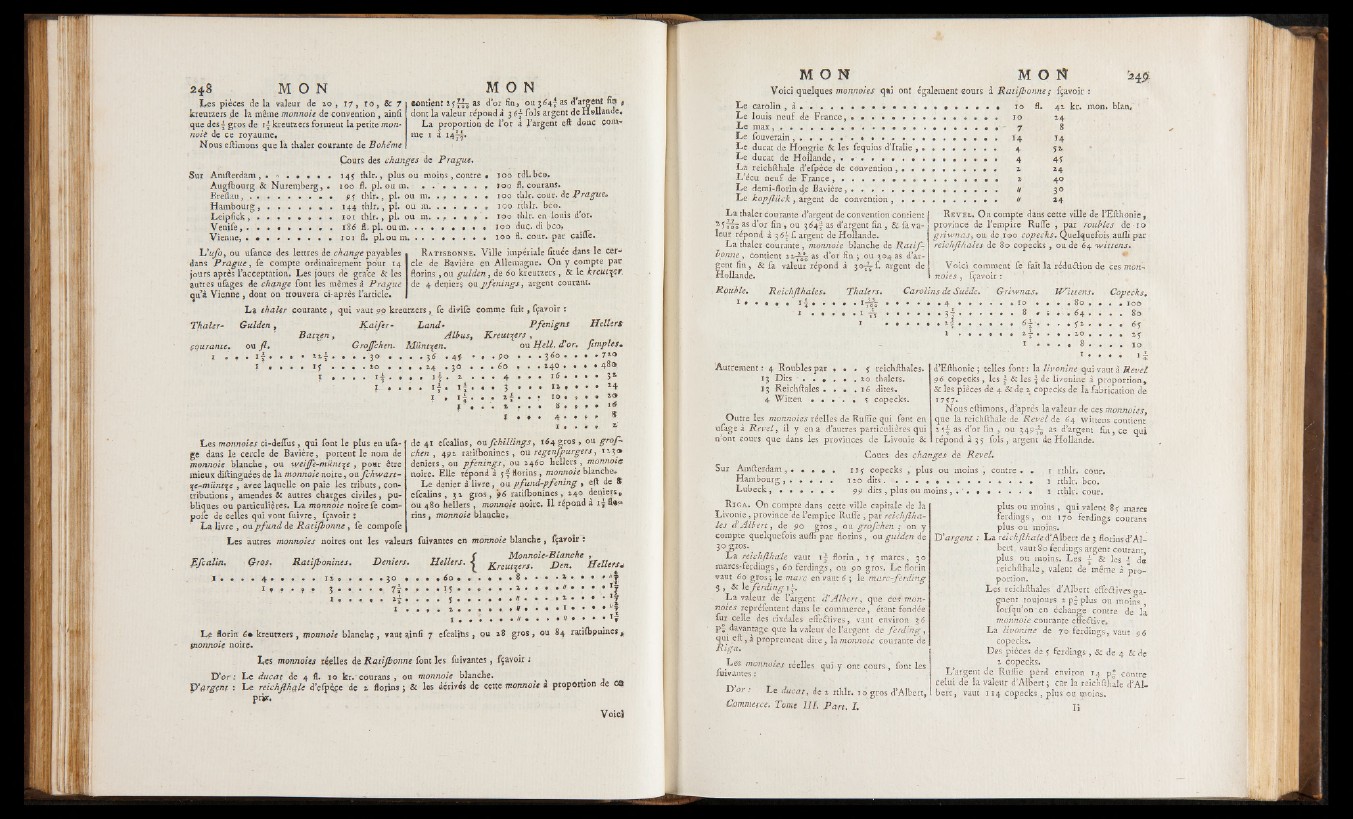 248 MON MON
Les piéces de la valeur de 20, 17, 10, & 7
kreutzers de la même monnoie de convention, ainsi
que des ½ gros de 1½ kreutzers forment la petite mon-
noie de ce royaume.
Nous estimons que la thaler courante de Bohême
contient as d'or fin, ou as d'argent fin,
dont la valeur répond à sols argent de Hollande.
La proportion de l'or à l'argent est donc com-
me 1 à
Cours des changes de Prague.
Sur Amsterdam, . . . . . . 145 thlr., plus ou moins, contre . 100 rdl. bco.
Augsbourg & Nuremberg, . 100 fl. pl. ou m. . . . . . . . 100 fl. courans.
Breslau, . . . . . . . . . 95 thlr., pl. ou m. . . . . . . 100 thlr. cour. de Prague.
Hambourg, . . . . . . . . 144 thlr., pl. ou m. . . . . . . 100 rthlr. bco.
Leipsick, . . . . . . . . . 101 thlr., pl. ou m. . . . . . . 100 thlr. en louis d'or.
Venise, . . . . . . . . . . 186 fl. pl. ou m. . . . . . . . 100 duc. di bco.
Vienne, . . . . . . . . . . 101 fl. pl. ou m. . . . . . . . 100 fl. cour. par caisse.
L'uso, ou usance des lettres de change payables
dans Prague, se compte ordinairement pour 14
jours après l'acceptation. Les jours de grace & les
autres usages de change sont les mêmes à Prague
qu'à Vienne, dont on trouvera ci-après l'article.
RATISBONNE. Ville impériale située dans le cer-
cle de Bavière en Allemagne. On y compte par
florins, ou gulden, de 60 kreutzers, & le kreutzer
de 4 deniers ou pfenings, argent courant.
La thaler courante, qui vaut 90 kreutzers, se divise comme suit, sçavoir :
Thaler- Gulden, Kaiser- Land- Pfenigns Hellers
Batzen, Albus, Kreutzers,
courante. ou fl. Groschen. Müntzen. ou Hell. d'or. simples.
1 . . . 1½ . . . 22½ . . . 30 . . . 36 . 45 . . . 90 . . . 360 . . . 720
1 . . . 15 . . . 20 . . . 24 . 30 . . . 60 . . . 240 . . . 480
Les monnoies ci-dessus, qui sont le plus en usa-
ge dans le cercle de Bavière, portent le nom de
monnoie blanche, ou weisse-müntze, pour être
mieux distinguées de la monnoie noire, ou schwart-
ze-müntze, avec laquelle on paie les tributs, con-
tributions, amendes & autres charges civiles, pu-
bliques ou particulières. La monnoie noire se com-
pose de celles qui vont suivre, sçavoir :
La livre, ou pfund de Ratisbonne, se compose
de 41 escalins, ou schillings, 164 gros, ou gros-
chen, 492 ratisbonines, ou regenspurgers, 1230
deniers, ou pfenings, ou 2460 hellers, monnoie
noire. Elle répond à florins, monnoie blanche.
Le denier à livre, ou pfund-pfening, est de 8
escalins, 32 gros, 96 ratisbonines, 240 deniers,
ou 480 hellers, monnoie noire. Il répond à flo-
rins, monnoie blanche.
Les autres monnoies noires ont les valeurs suivantes en monnoie blanche, sçavoir :
Escalin. Gros. Ratisbonines. Deniers. Hellers. { Monnoie-Blanche,
Kreutzers. Den. Hellers.
Le florin 60 kreutzers, monnoie blanche, vaut ainsi 7 escalins, ou 28 gros, ou 84 ratisbonines,
monnoie noire.
Les monnoies réelles de Ratisbonne sont les suivantes, sçavoir :
D'or : Le ducat de 4 fl. 10 kr. courans, ou monnoie blanche.
D'argent : Le reichsthale d'espéçe de 2 florins ; & les dérivés de cette monnoie à proportion de ce
prix.
Voici
MON MON 249
Voici quelques monnoies qui ont également cours à Ratisbonne ; sçavoir :
Le carolin, à . . . . . . . . . . 10 fl. 42 kr. mon. blan.
Le louis neuf de France, . . . . . . . . . . 10 24
Le max, . . . . . . . . . . 7 8
Le souverain, . . . . . . . . . . 14 14
Le ducat de Hongrie & les sequins d'Italie, . . . . . . . . 4 52
Le ducat de Hollande, . . . . . . . . . . 4 45
La reichsthale d'espéce de convention, . . . . . . . . . . 2 24
L'écu neuf de France, . . . . . . . . . . 2 40
Le demi-florin de Bavière, . . . . . . . . . . " 30
Le kopfstück, argent de convention, . . . . . . . . . . " 24
La thaler courante d'argent de convention contient
as d'or fin, ou as d'argent fin, & sa va-
leur répond à f. argent de Hollande.
La thaler courante, monnoie blanche de Ratis-
bonne, contient as d'or fin ; ou 304 as d'ar-
gent fin, & sa valeur répond à f. argent de
Hollande.
REVEL. On compte dans cette ville de l'Esthonie,
province de l'empire Russe, par roubles de 10
griwnas, ou de 100 copecks. Quelquefois aussi par
reichsthales de 80 copecks, ou de 64 wittens.
Voici comment se fait la réduction de ces mon-
noies, sçavoir :
Rouble. Reichsthales. Thalers. Carolins de Suède. Griwnas. Wittens. Copecks.
Autrement : 4 Roubles par . . . 5 reichsthales.
13 Dits . . . . . 20 thalers.
13 Reichstales . . . . 16 dites.
4 Witten . . . . . 5 copecks.
Outre les monnoies réelles de Russie qui sont en
usage à Revel, il y en a d'autres particulières qui
n'ont cours que dans les provinces de Livonie &
d'Esthonie ; telles sont : la livonine qui vaut à Revel
96 copecks, les ½ & les ¼ de livonine à proportion,
& les pièces de 4 & de 2 copecks de la fabrication de
1757.
Nous estimons, d'après la valeur de ces monnoies,
que la reichsthale de Revel de 64 wittens contient
as d'or fin, ou as d'argent fin, ce qui
répond à 35 sols, argent de Hollande.
Cours des changes de Revel.
Sur Amsterdam, . . . . . 115 copecks, plus ou moins, contre . . 1 rthlr. cour.
Hambourg, . . . . . 120 dits . . . . . . . . . . 1 rthlr. bco.
Lubeck, . . . . . . 99 dits, plus ou moins, . . . . . . . . 1 rthlr. cour.
RIGA. On compte dans cette ville capitale de la
Livonie, province de l'empire Russe, par reichstha-
les d'Albert, de 90 gros, ou groschen ; on y
compte quelquefois aussi par florins, ou gulden de
30 gros.
La reichsthale vaut florin, 15 marcs, 30
marcs-ferdings, 60 ferdings, ou 90 gros. Le florin
vaut 60 gros ; le marc en vaut 6 ; le marc-ferding
3, & le ferding 1½.
La valeur de l'argent d'Albert, que ces mon-
noies représentent dans le commerce, étant fondée
sur celle des rixdales effectives, vaut environ 36
p% davantage que la valeur de l'argent de ferding,
qui est, à proprement dire, la monnoie courante de
Riga.
Les monnoies réelles qui y ont cours, sont les
suivantes :
D'or : Le ducat, de 2 rthlr. 10 gros d'Albert,
Commerce. Tome III. Part. I.
plus ou moins, qui valent 85 marcs
ferdings, ou 170 ferdings courans
plus ou moins.
D'argent : La reichsthale d'Albert de 3 florins d'Al-
bert, vaut 80 ferdings argent courant,
plus ou moins. Les ½ & les ¼ de
reichsthale, valent de même à pro-
portion.
Les reichsthales d'Albert effectives ga-
gnent toujours 2 p% plus ou moins,
lorsqu'on en échange contre de la
monnoie courante effective.
La livonine de 70 ferdings, vaut 96
copecks.
Des pièces de 5 ferdings, & de 4 & de
2 copecks.
L'argent de Russie perd environ 14 p% contre
celui de la valeur d'Albert ; car la reichsthale d'Al-
bert, vaut 114 copecks, plus ou moins.
Ii